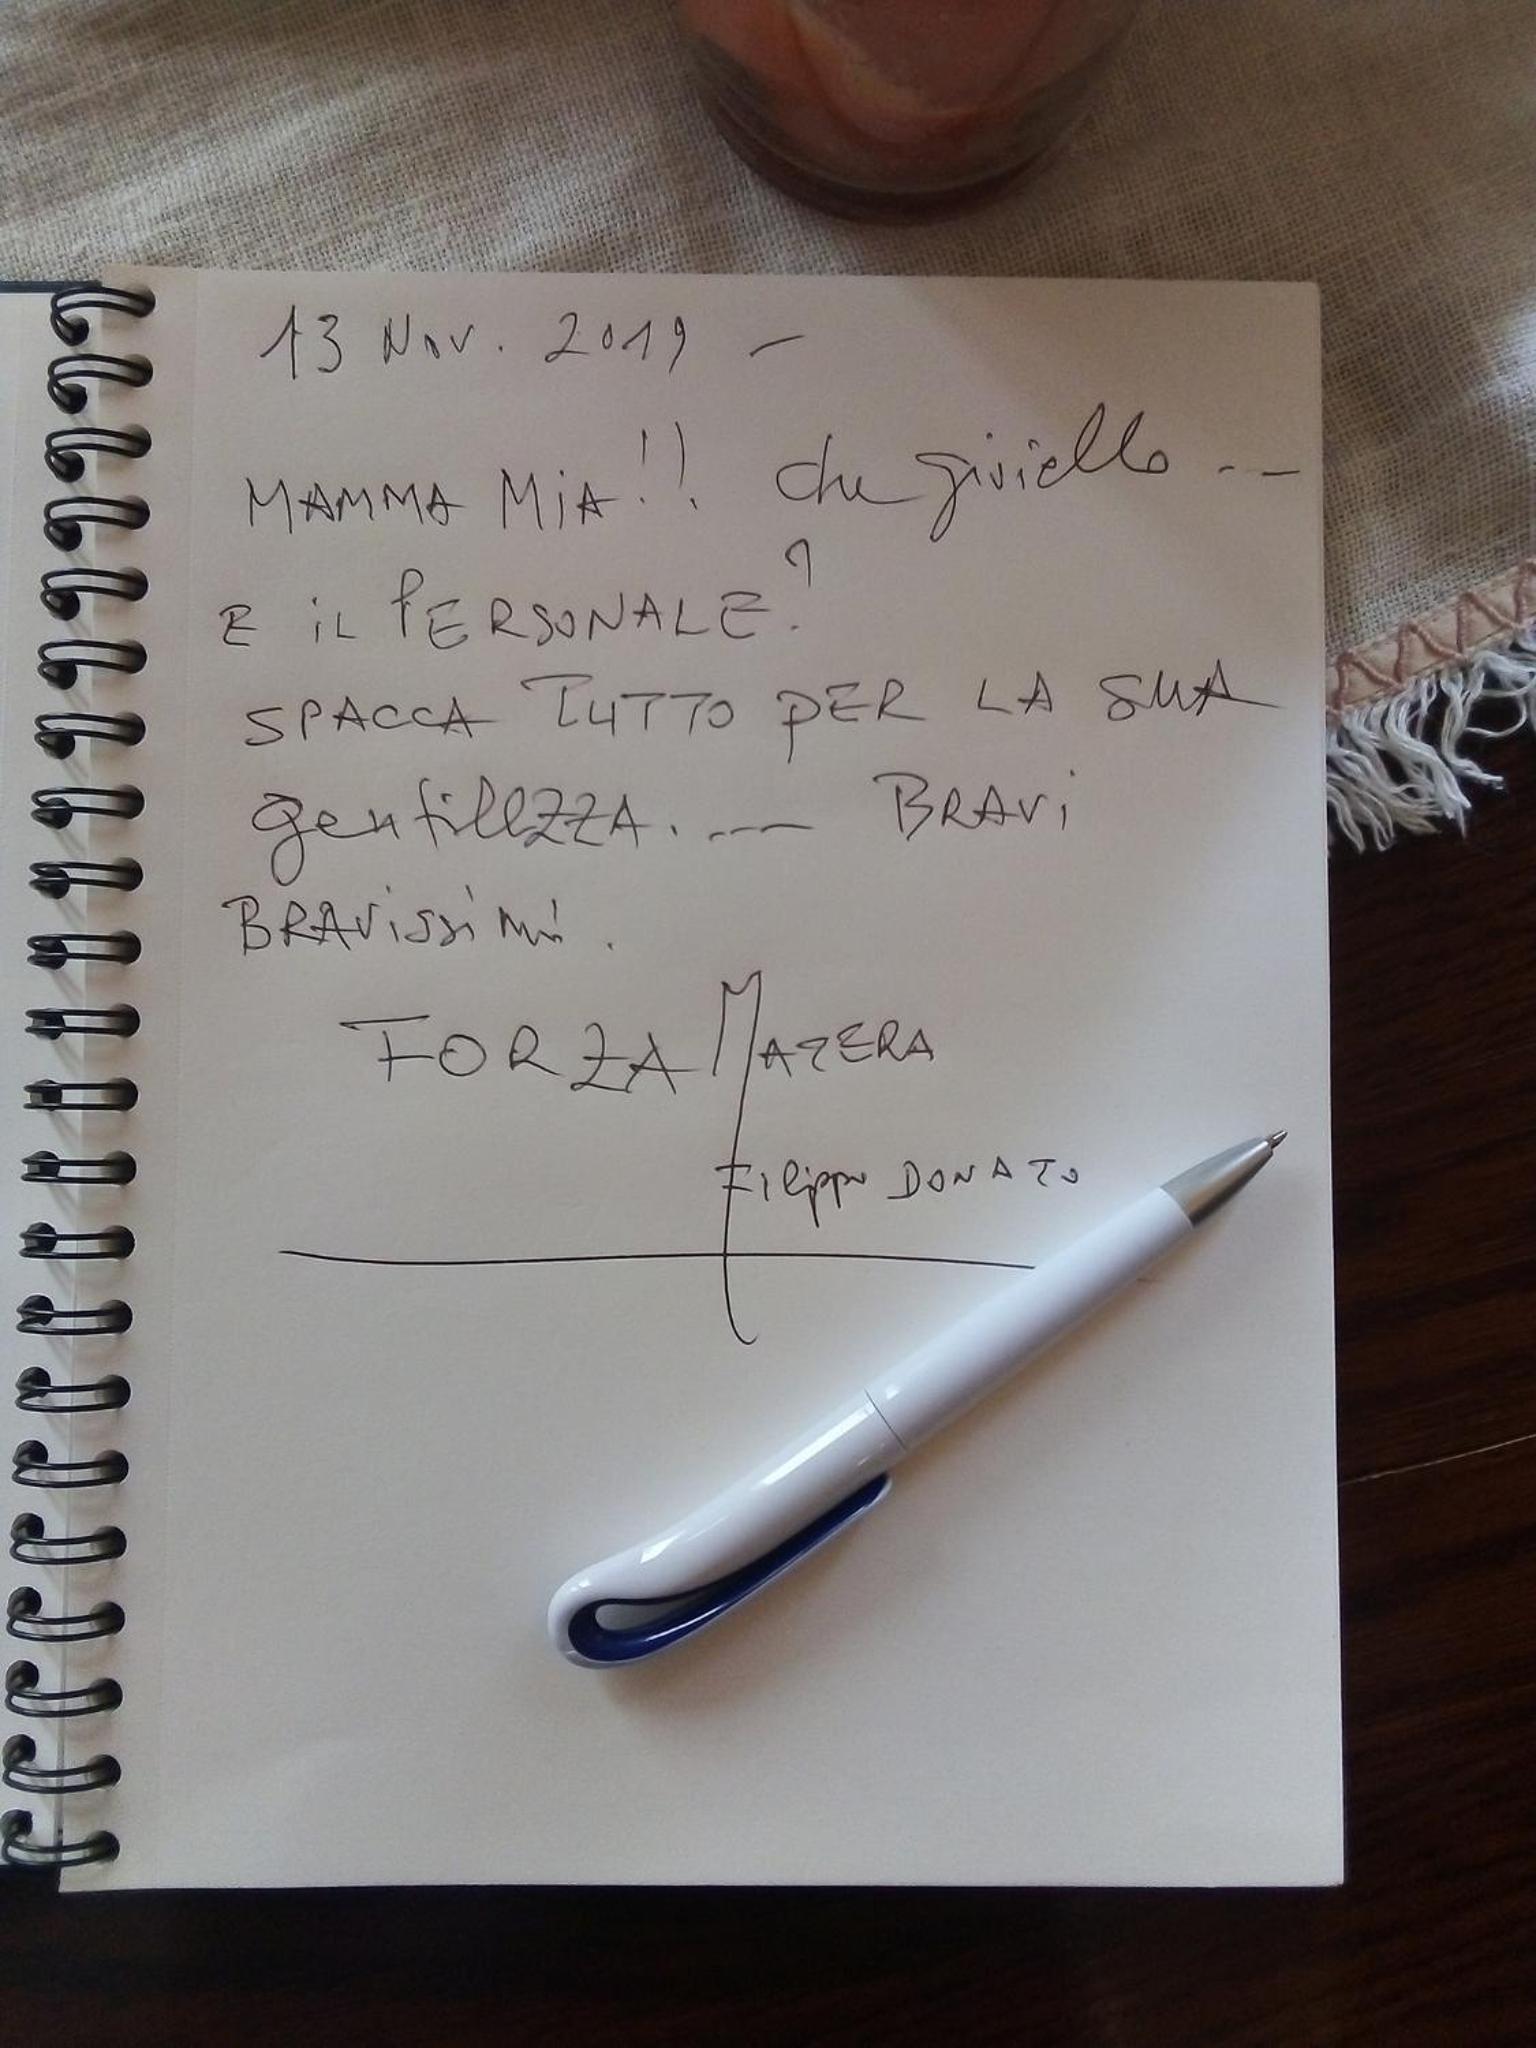 13 Nov. 2019 -
MAMMA MIA!! che gioiello ---
E IL PERSONALE?
SPACCA TUTTO PER LA SUA
gentilEZZA. --- BRAVI
BRAVISSIMI.
FORZA MATERA
Filippo DONATO